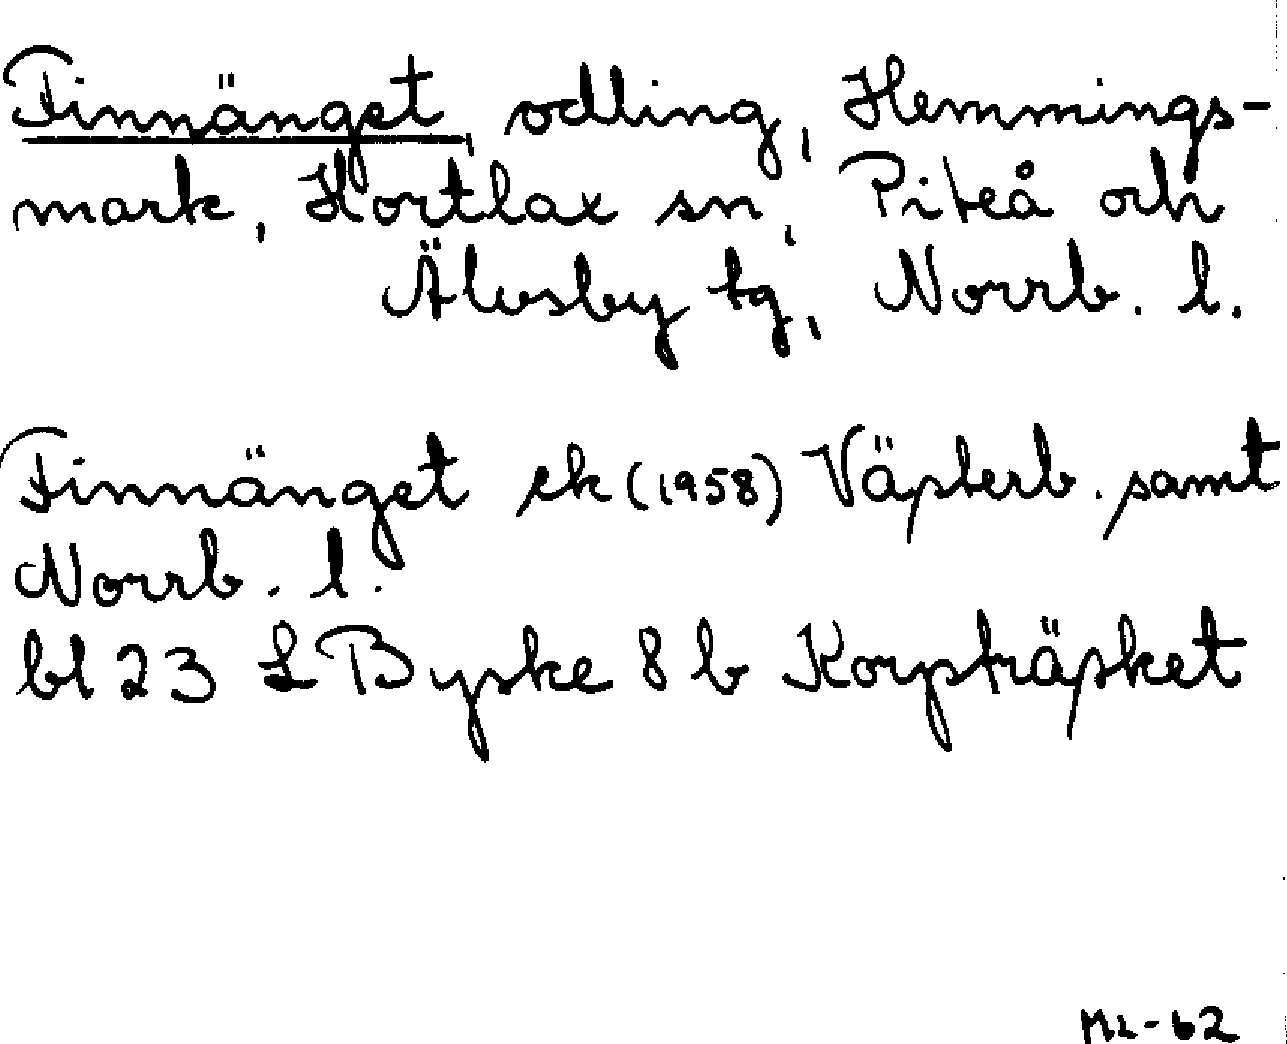 Finnänget, odling, Hemmings-
mark, Hortlax sn, Piteå och
Älvsby tg, Norrb. l.
Finnänget ek (1958) Västerb. samt
Norrb. l.
bl 23 L Byske 8 b Korpträsket
ML-62